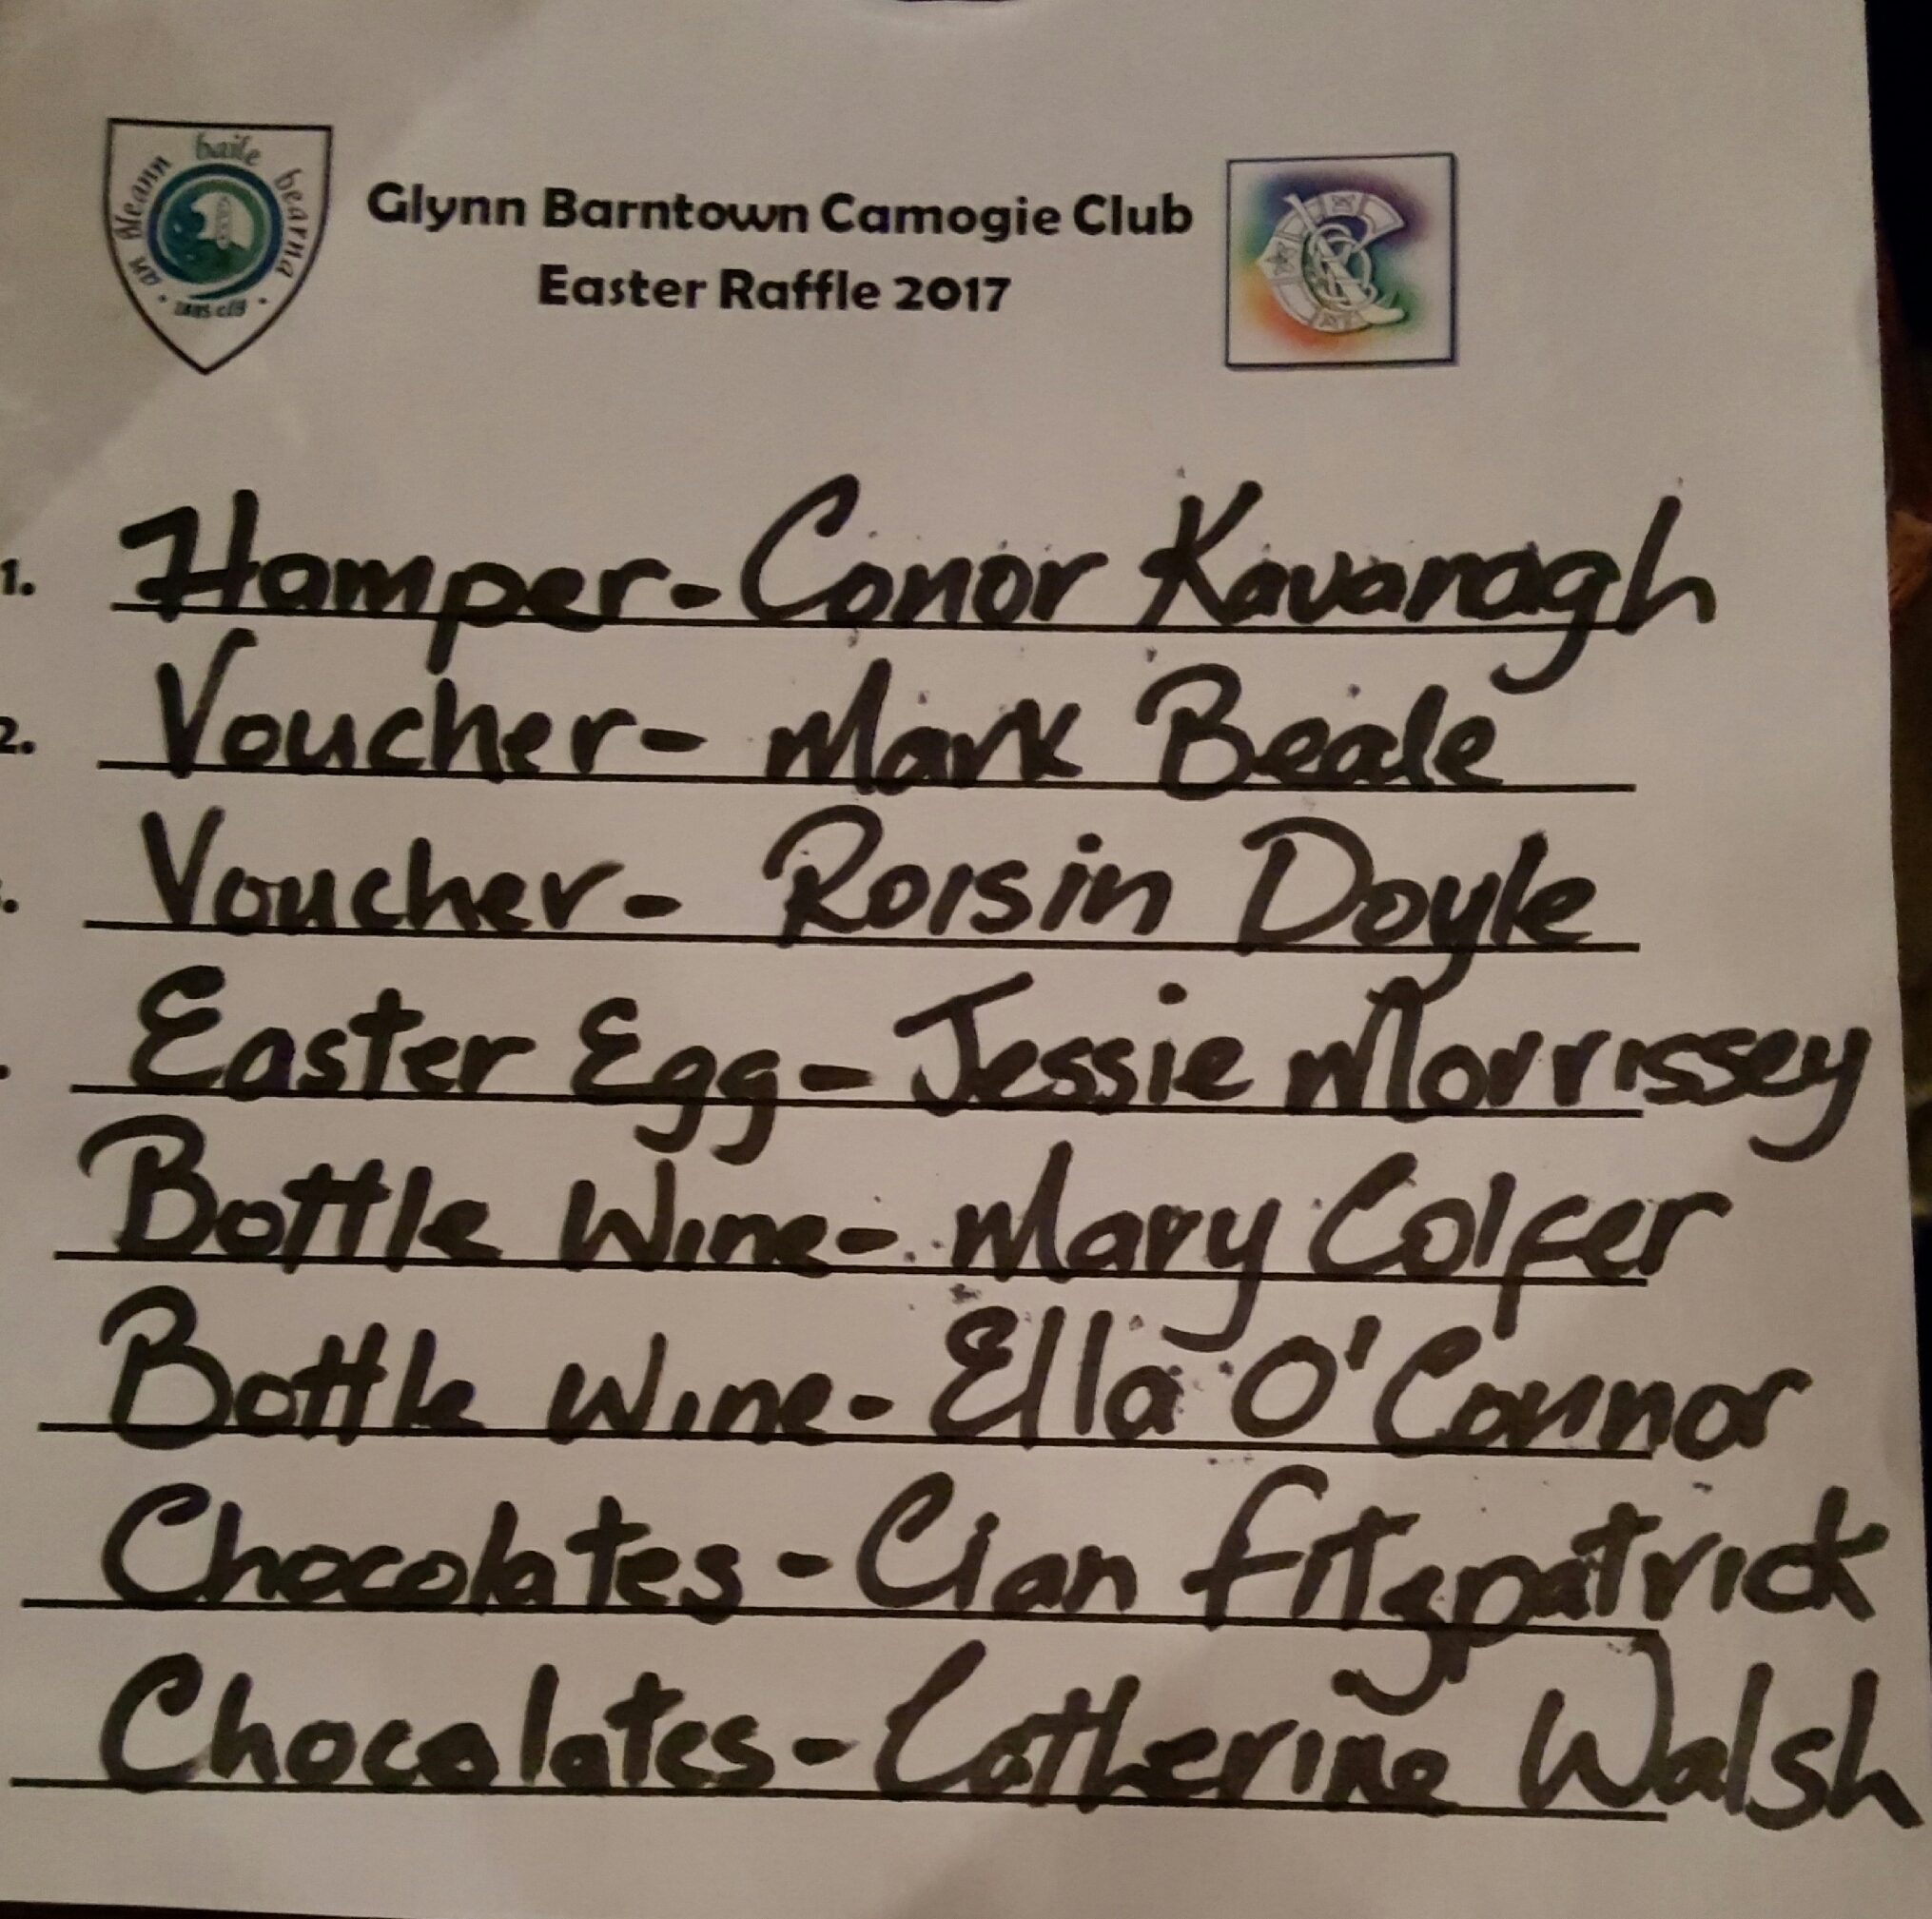 an gleann baile bearna
Glynn Barntown Camogie Club
Easter Raffle 2017
1. Hamper - Conor Kavanagh
2. Voucher - Mark Beale
Voucher - Roisin Doyle
Easter Egg - Jessie Morrissey
Bottle Wine - Mary Colfer
Bottle Wine - Ella O'Connor
Chocolates - Cian Fitzpatrick
Chocolates - Catherine Walsh